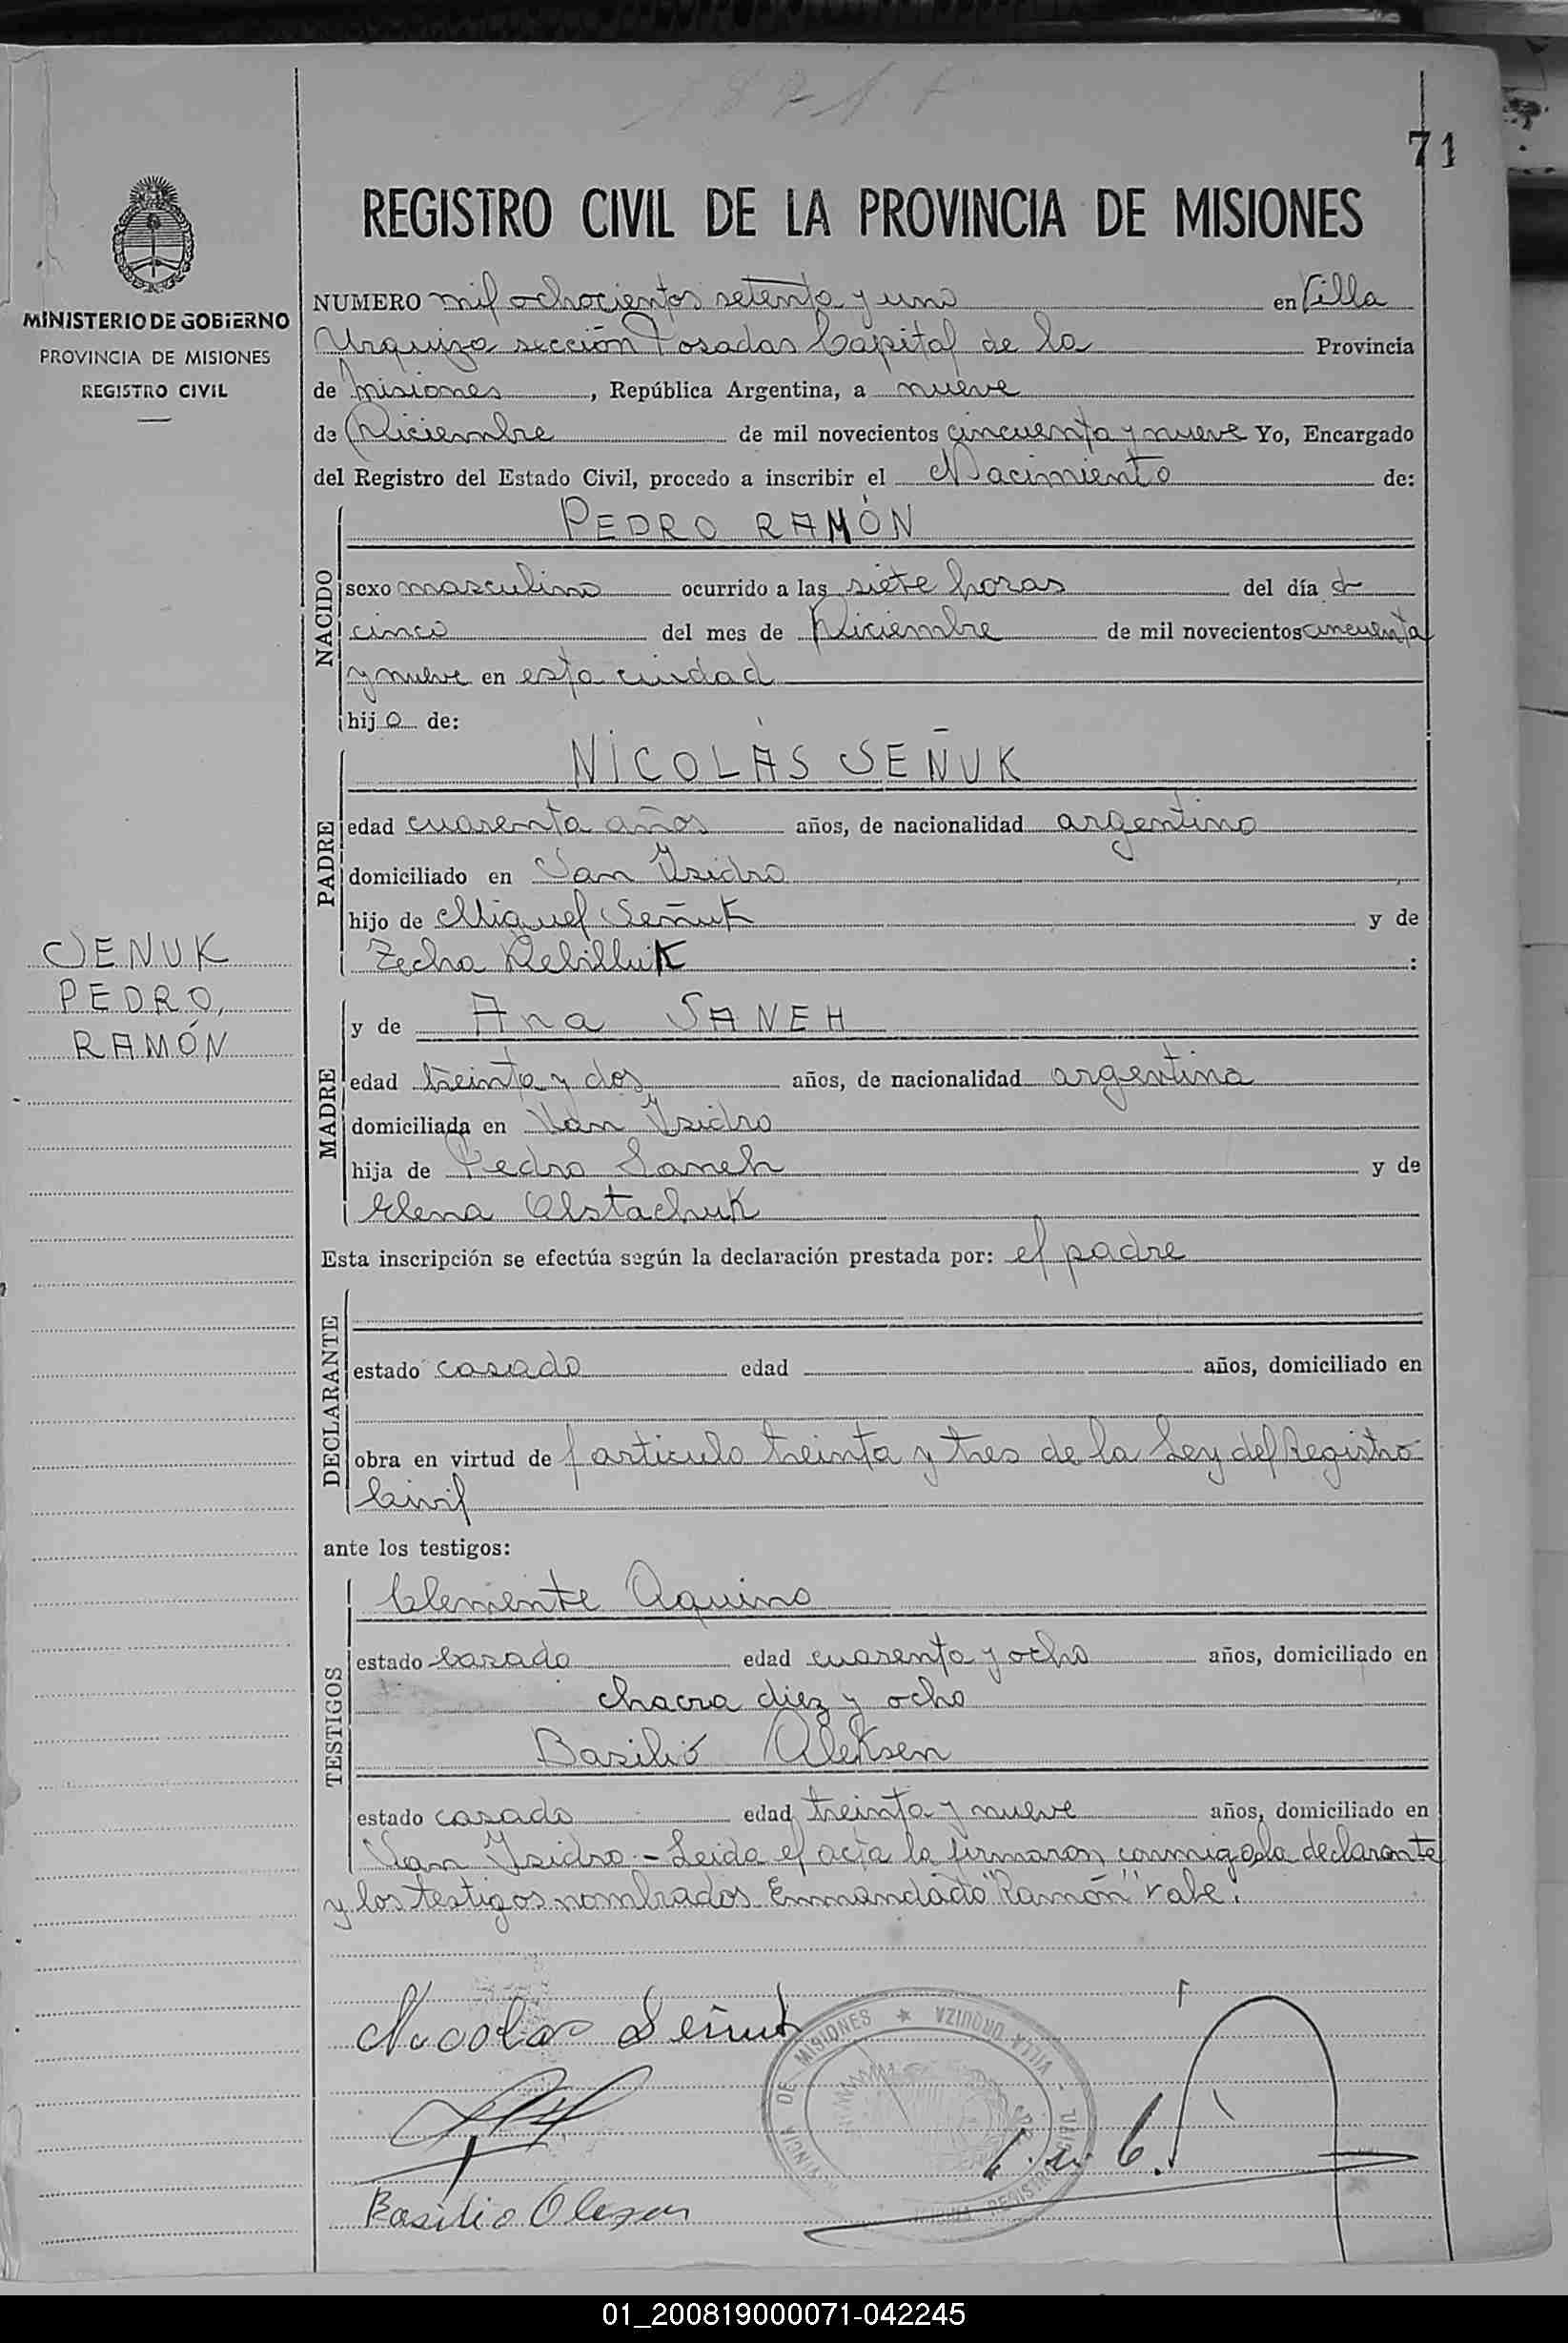 71
REGISTRO CIVIL DE LA PROVINCIA DE MISIONES
MINISTERIO DE GOBIERNO
PROVINCIA DE MISIONES
REGISTRO CIVIL
NUMERO mil ochocientos setenta y uno en Villa
Urquiza sección Posadas Capital de la Provincia
de Misiones, República Argentina, a nueve
de Diciembre de mil novecientos cincuenta y nueve Yo, Encargado
del Registro del Estado Civil, procedo a inscribir el Nacimiento de:
PEDRO RAMÓN
NACIDO
sexo masculino ocurrido a las siete horas del día
cinco del mes de Diciembre de mil novecientos cincuenta
y nueve en esta ciudad
hijo de:
NICOLÁS SEÑUK
PADRE
edad cuarenta años años, de nacionalidad argentino
domiciliado en San Isidro
hijo de Miguel Señuk y de
Zecha
SENUK
PEDRO,
RAMÓN
MADRE
y de Ana SANEH
edad treinta y dos años, de nacionalidad argentina
domiciliada en San Isidro
hija de Pedro Saneh y de
Elena
Esta inscripción se efectúa según la declaración prestada por: el padre
DECLARANTE
estado casado edad años, domiciliado en
obra en virtud de articulo treinta y tres de la Ley del Registro
Civil
ante los testigos:
TESTIGOS
Clemente Aquino
estado casado edad cuarenta y ocho años, domiciliado en
chacra diez y ocho
Basilio Aleksen
estado casado edad treinta y nueve años, domiciliado en
San Isidro.- Leida el acta la firmaron conmigo la declarante
y los testigos nombrados. Enmendado "Ramón" vale.
Nicolas Señuk
VILLA URQUIZA ★ DE MISIONES
Basilio
01_200819000071-042245